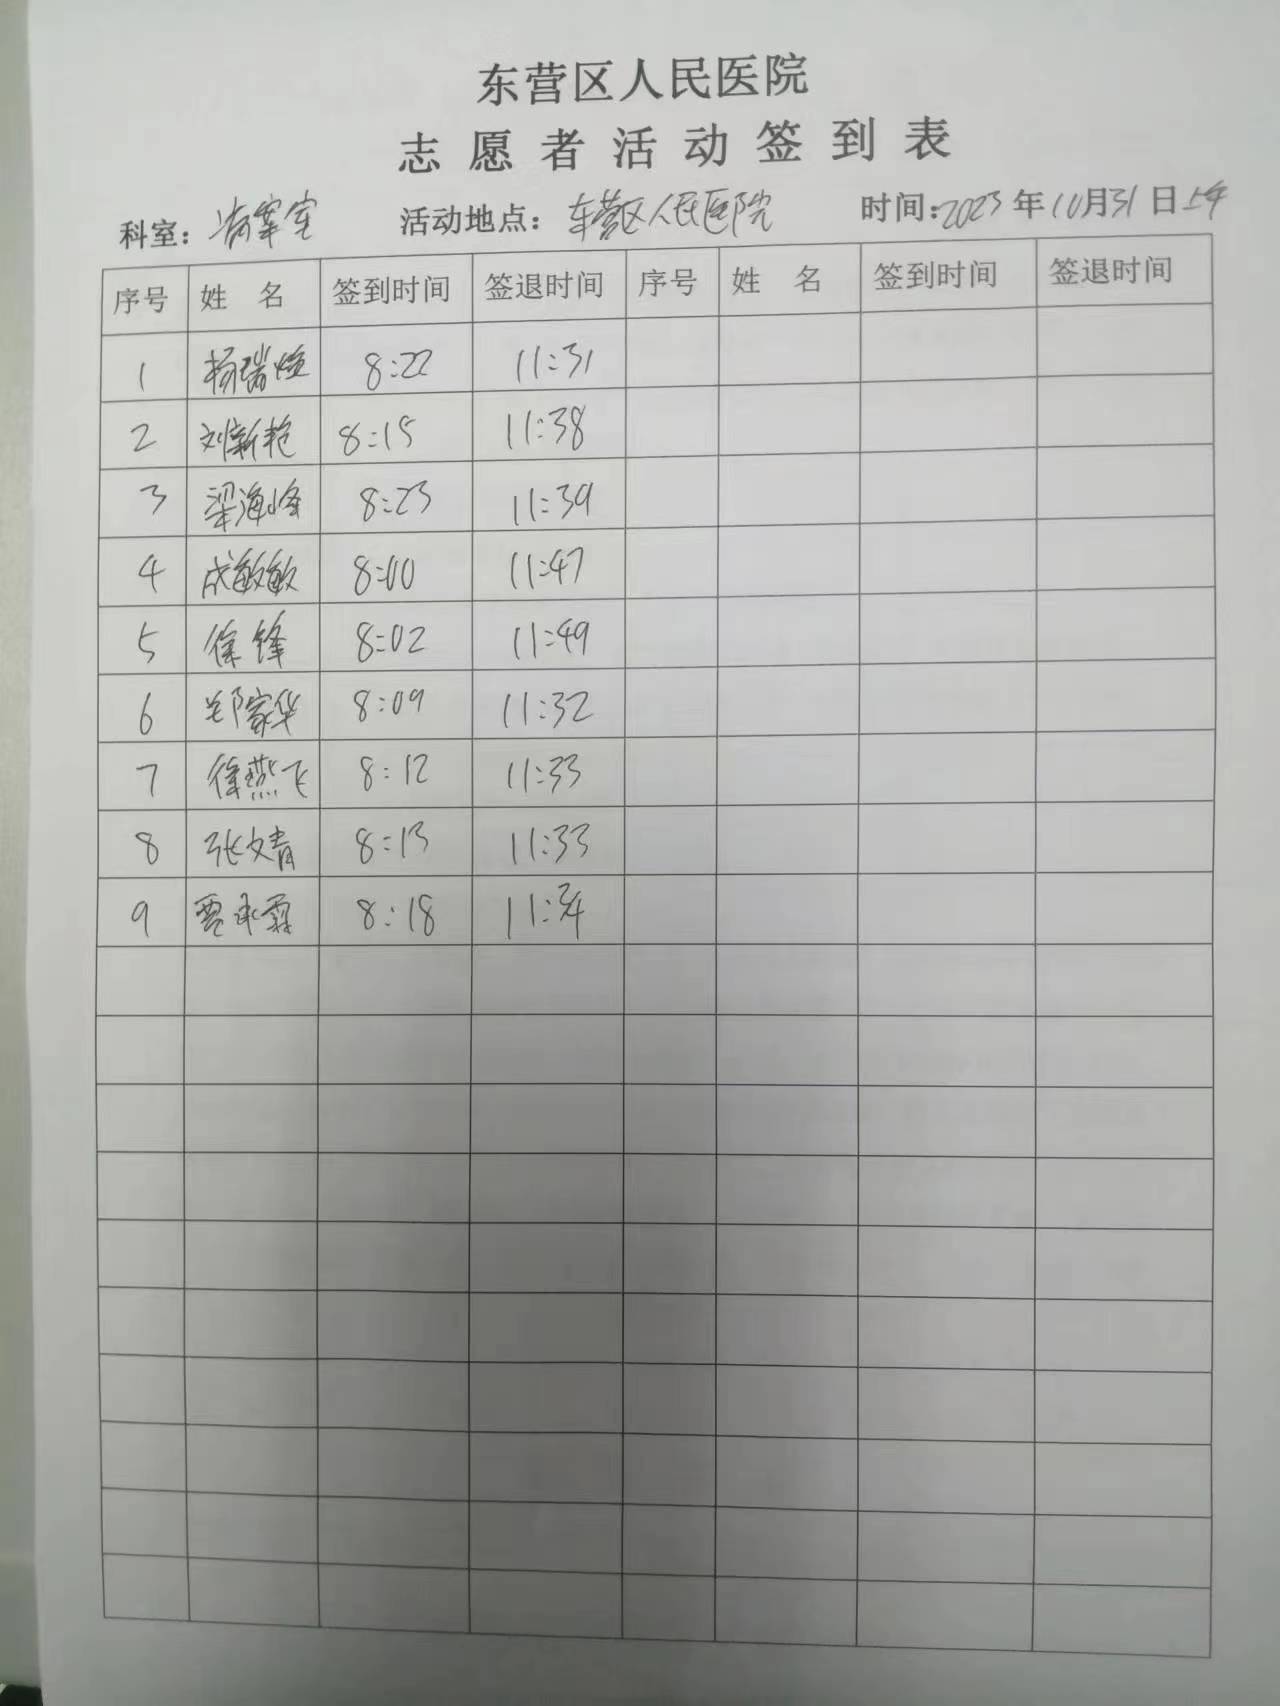 东营区人民医院
志愿者活动签到表
科室：病案室 活动地点：东营区人民医院 时间：2023年10月31日上午
序号 姓名 签到时间 签退时间 序号 姓名 签到时间 签退时间
1 杨瑞 8:22 11:31
2 刘新艳 8:15 11:38
3 梁海峰 8:23 11:39
4 成敏敏 8:00 11:47
5 徐锋 8:02 11:49
6 家华 8:09 11:32
7 徐燕飞 8:12 11:33
8 张文青 8:13 11:33
9 贾承霖 8:18 11:34